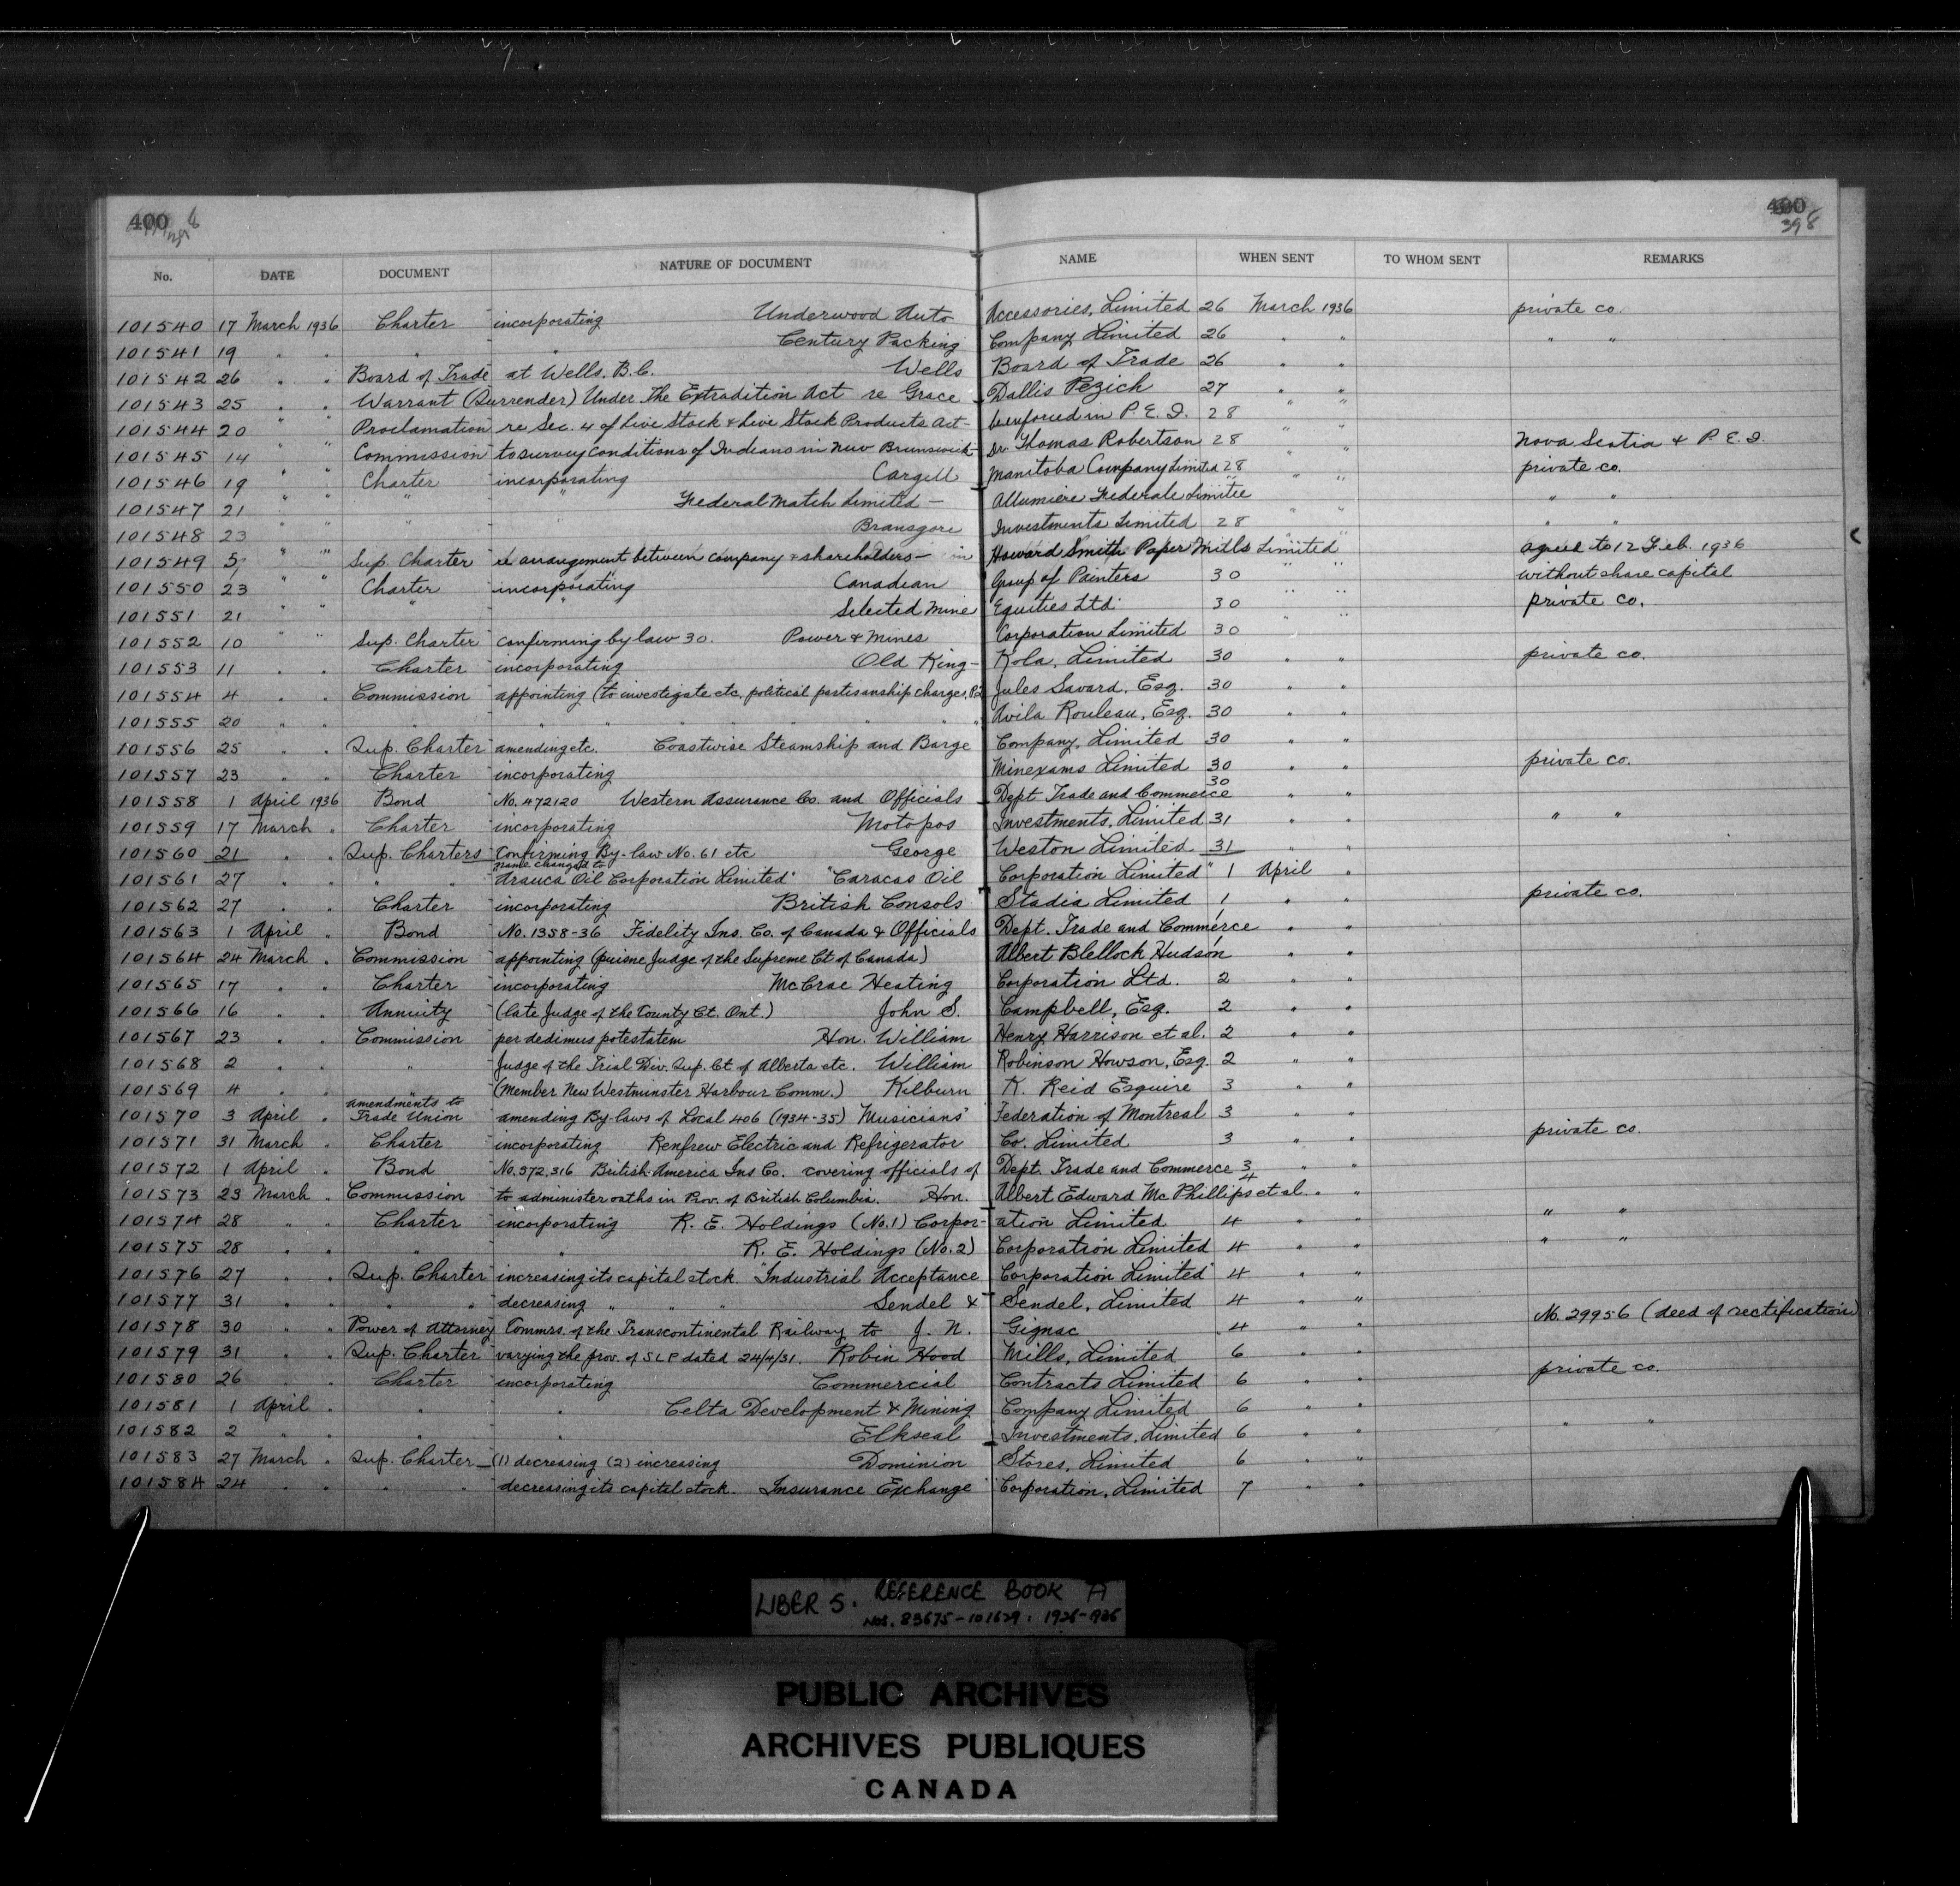 400
400
398
No. DATE DOCUMENT NATURE OF DOCUMENT NAME WHEN SENT TO WHOM SENT REMARKS
101540 17 March 1936 Charter incorporating Underwood Auto Accessories, Limited 26 March 1936 private co.
101541 19 " " " " Century Packing Company Limited 26 " " " "
101542 26 " " Board of Trade at Wells, B.C. Wells Board of Trade 26 " "
101543 25 " " Warrant (Surrender) Under The Extradition Act re Grace Dallis Pezich 27 " "
101544 20 " " Proclamation re Sec. 4 of Live Stock & Live Stock Products Act - be enforced in P.E.I. 28 " "
101545 14 " " Commission to survey conditions of Indians in New Brunswick - Dr. Thomas Robertson 28 " " Nova Scotia & P.E.I.
101546 19 " " Charter incorporating Cargill Manitoba Company Limited 28 " " private co.
101547 21 " " " " Federal Match Limited - Allumiere Federale Limitee " " " "
101548 23 " " " " Bransgore Investments Limited 28 " " " "
101549 5 " " Sup. Charter re arrangement between company & shareholders - in Howard Smith Paper Mills Limited " " agreed to 12 Feb. 1936
101550 23 " " Charter incorporating Canadian Group of Painters 30 " " without share capital
101551 21 " " " " Selected Mine Equities Ltd. 30 " " private co.
101552 10 " " Sup. Charter confirming by law 30. Power & Mines Corporation Limited 30
101553 11 " " Charter incorporating Old King- Kola, Limited 30 " " private co.
101554 4 " " Commission appointing (to investigate etc. political partisanship charges, P.Q. Jules Savard, Esq. 30 " "
101555 20 " " " " " " " " Avila Rouleau, Esq. 30 " "
101556 25 " " Sup. Charter amending etc. Coastwise Steamship and Barge Company, Limited 30 " "
101557 23 " " Charter incorporating Minexams Limited 30 " " private co.
101558 1 April 1936 Bond No. 472120 Western Assurance Co. and Officials Dept Trade and Commerce 30 " "
101559 17 March " Charter incorporating Motopos Investments, Limited 31 " " " "
101560 21 " " Sup. Charters Confirming By-law No. 61 etc George Weston Limited 31 " "
name changed to
101561 27 " " " " "Arauca Oil Corporation Limited" "Caracas Oil Corporation Limited" 1 April "
101562 27 " " Charter incorporating British Consols Stadia Limited 1 " " private co.
101563 1 April " Bond No. 1358-36 Fidelity Ins. Co. of Canada & Officials Dept. Trade and Commerce 1 " "
101564 24 March " Commission appointing (puisne Judge of the Supreme Ct of Canada) Albert Blellock Hudson 1 " "
101565 17 " " Charter incorporating McCrae Heating Corporation Ltd. 2 " "
101566 16 " " Annuity (late Judge of the County Ct. Ont.) John S. Campbell, Esq. 2 " "
101567 23 " " Commission per dedimus potestatem Hon. William Henry Harrison et al. 2 " "
101568 2 " " " Judge of the Trial Div. Sup. Ct of Alberta etc. William Robinson Howson, Esq. 2 " "
101569 4 " " " (Member New Westminster Harbour Comm.) Kilburn K. Reid Esquire 3 " "
amendments to
101570 3 April " Trade Union amending By-laws of Local 406 (1934-35) Musicians' Federation of Montreal 3 " "
101571 31 March " Charter incorporating Renfrew Electric and Refrigerator Co. Limited 3 " " private co.
101572 1 April " Bond No. 572,316 British America Ins Co. covering officials of Dept. Trade and Commerce 3 " "
101573 23 March " Commission to administer oaths in Prov. of British Columbia. Hon. Albert Edward McPhillips et al. 4 " "
101574 28 " " Charter incorporating R. E. Holdings (No. 1) Corpor- ation Limited 4 " " " "
101575 28 " " " " R. E. Holdings (No. 2) Corporation Limited 4 " " " "
101576 27 " " Sup. Charter increasing its capital stock. "Industrial Acceptance Corporation Limited" 4 " "
101577 31 " " " " decreasing " " " Sendel & Sendel, Limited 4 " "
101578 30 " " Power of Attorney Commrs. of the Transcontinental Railway to J. N. Gignac 4 " " No. 29956 (deed of rectification)
101579 31 " " Sup. Charter varying the prov. of SLP dated 24/4/31. Robin Hood Mills, Limited 6 " "
101580 26 " " Charter incorporating Commercial Contracts Limited 6 " " private co.
101581 1 April " " " Celta Development & Mining Company Limited 6 " "
101582 2 " " " " Elkseal Investments, Limited 6 " " " "
101583 27 March " Sup. Charter (1) decreasing (2) increasing Dominion Stores, Limited 6 " "
101584 24 " " " " decreasing its capital stock. Insurance Exchange Corporation, Limited 7 " "
LIBER 5. REFERENCE BOOK A
NOS. 83675-101629: 1926-1936
PUBLIC ARCHIVES
ARCHIVES PUBLIQUES
CANADA